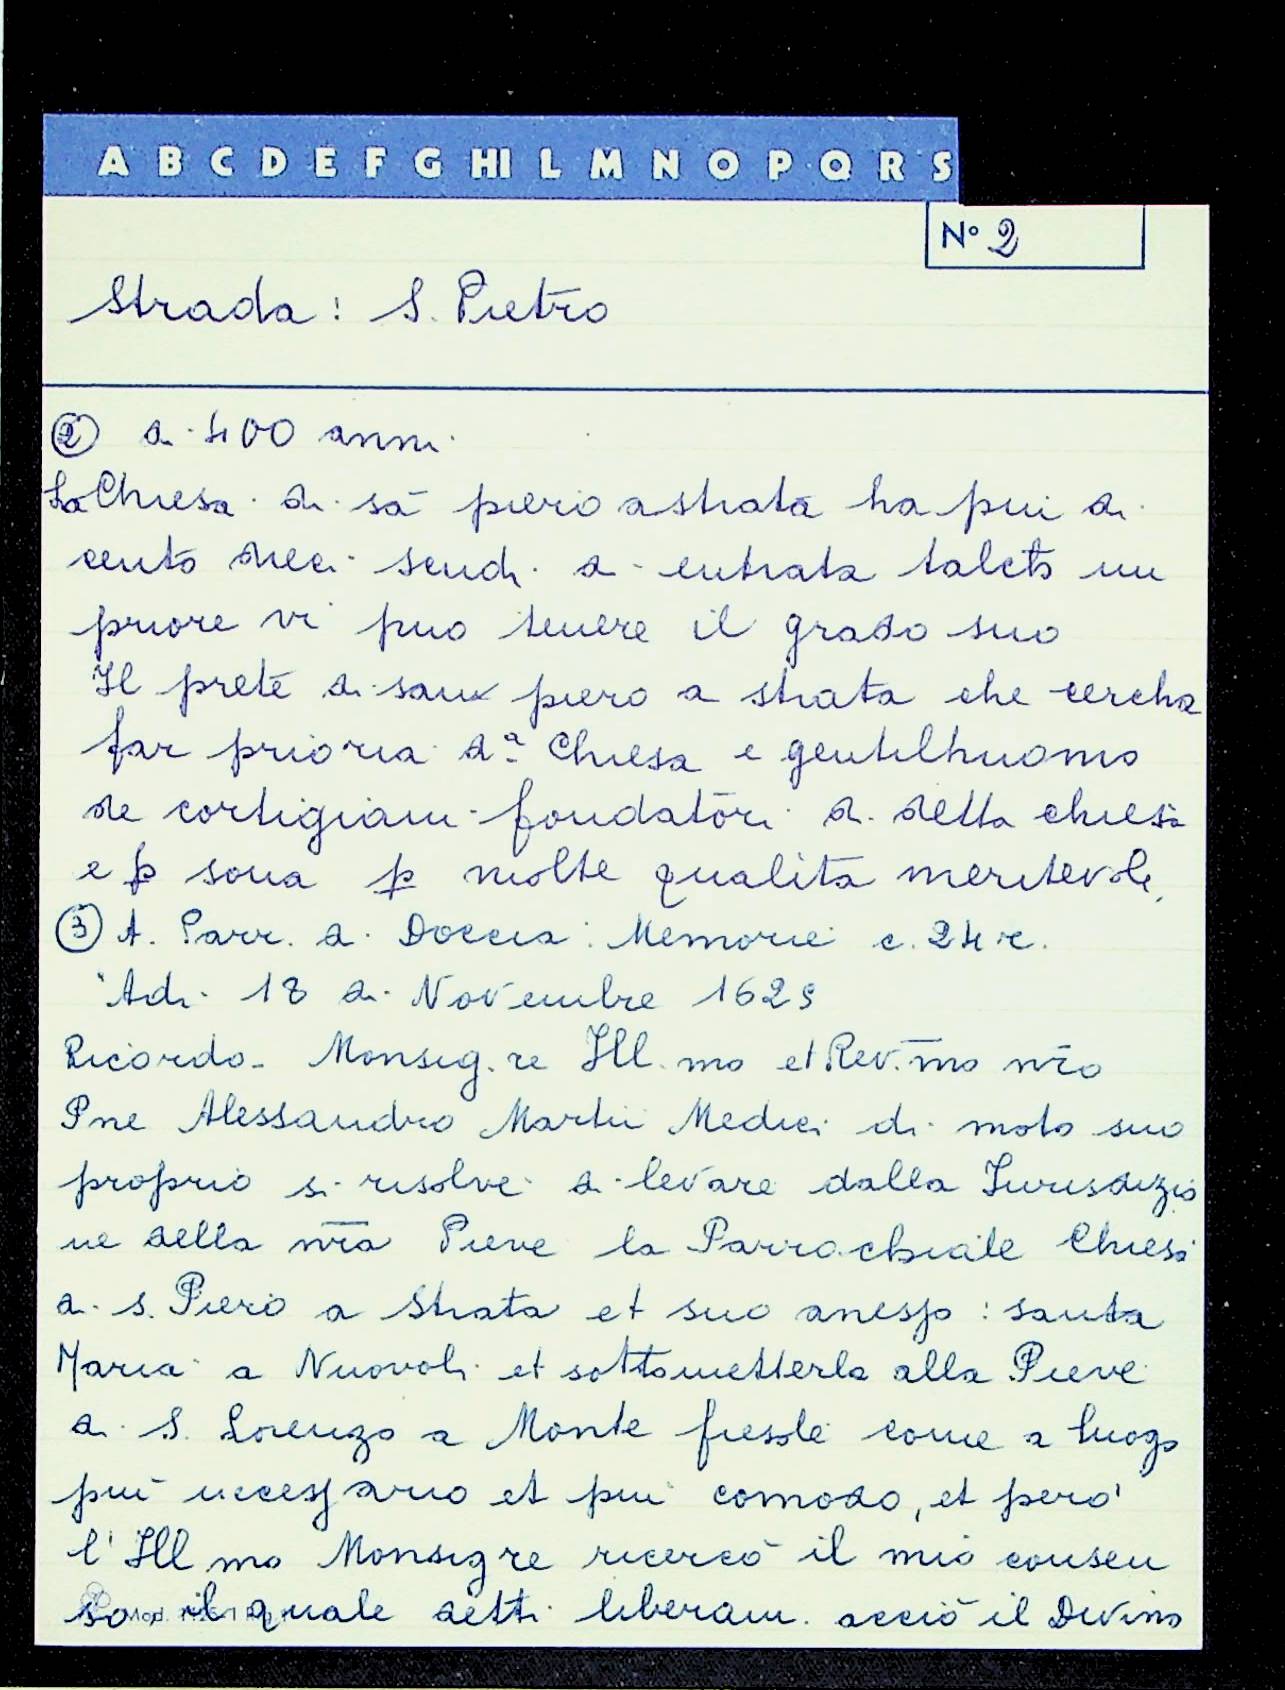 A B C D E F G HI L M N O P Q R S
N° 2
Strada: S. Pietro
② di 400 anni
La Chiesa di sā piero a strata ha piu di
cento dieci scudi di entrata talcto un
priore vi puo tenere il grado suo
Il prete di san piero a strata che cercha
far prioria d.ª Chiesa e gentilhuomo
de cortigiani fondatori di detta chiesa
e ꝑ sona ꝑ molte qualita meritevole.
③ A. Parr. di Doccia: Memorie c. 24 r.
"Adi 18 di Novembre 1629
Ricordo - Monsig.re Ill.mo et Rev.mo nr̄o
Pne Alessandro Marzi Medici di moto suo
proprio si risolve di levare dalla Iurisdizio
ne della nr̄a Pieve la Parrochiale Chiesa
di S. Piero a Strata et suo anesso: santa
Maria a Nuovoli et sottometterla alla Pieve
di S. Lorenzo a Monte fiesole come a luogo
piu necessario et piu comodo, et pero'
l'Ill mo Monsig re ricercò il mio consen
so il quale detti liberam. acciò il Divino